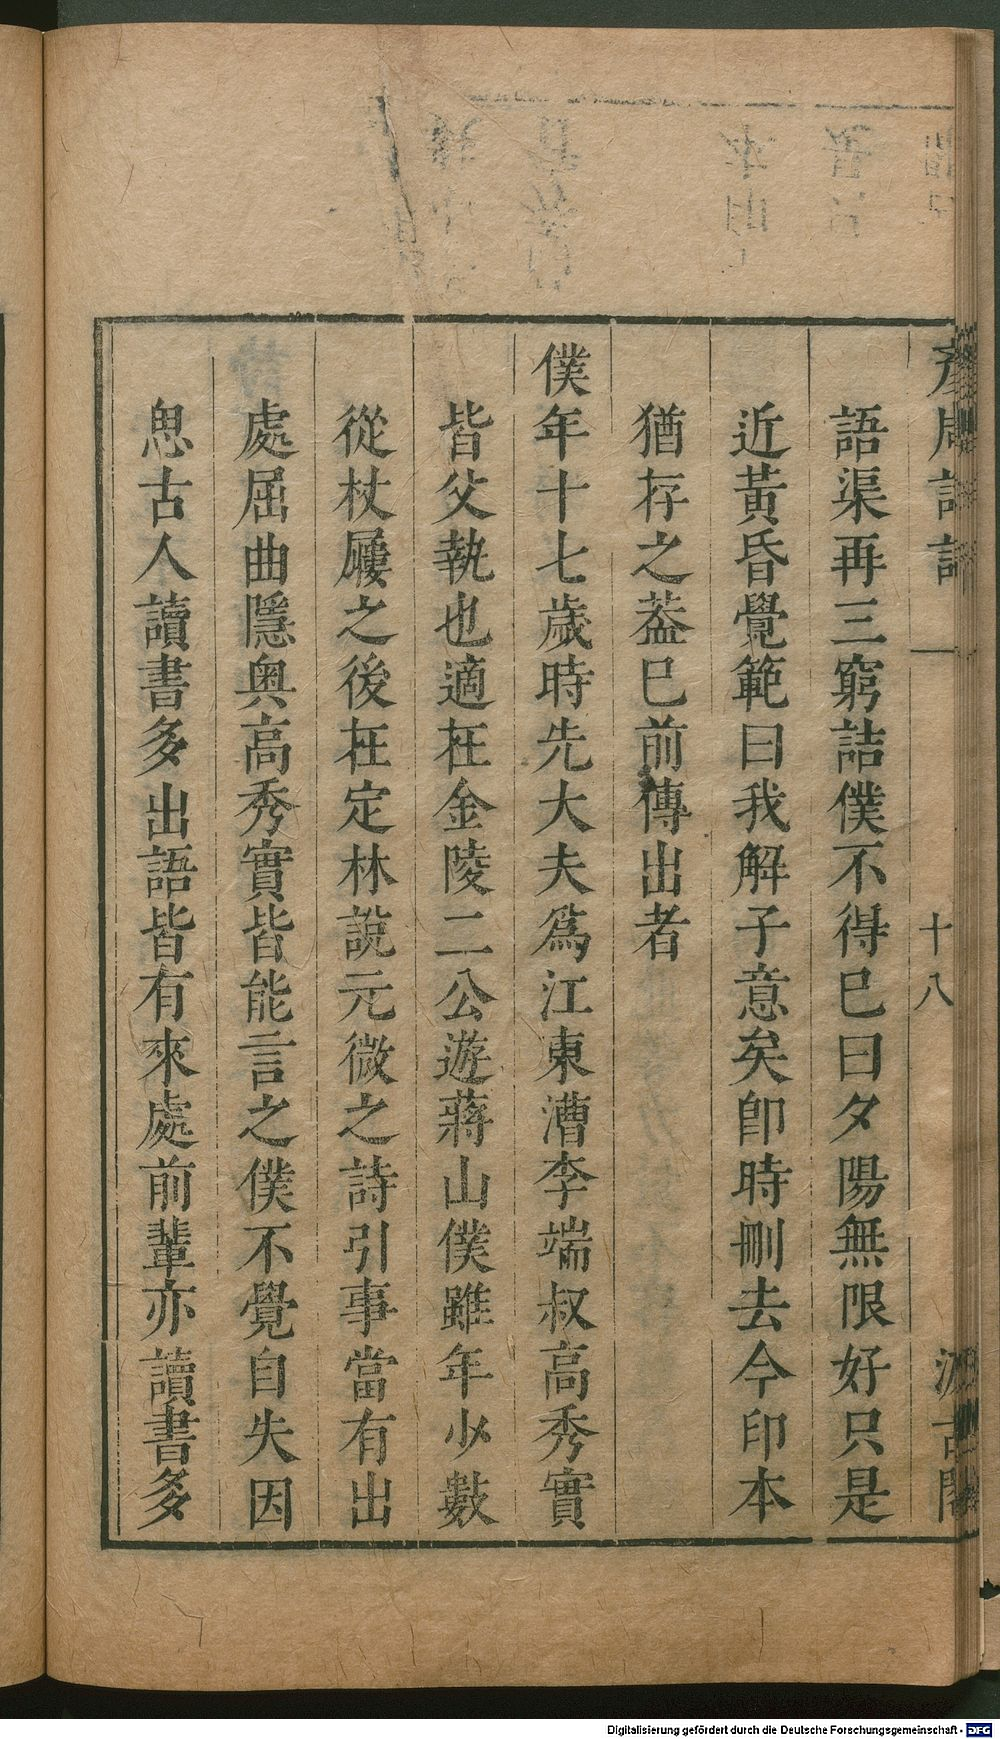 彥周詩話 一 十八 汲古閣
語渠再三窮詰僕不得巳曰夕陽無限好只是
近黃昏覺範曰我解子意矣卽時刪去今印本
猶存之葢巳前傳出者
僕年十七歲時先大夫爲江東漕李端叔高秀實
皆父執也適在金陵二公遊蔣山僕雖年少數
從杖屨之後在定林說元微之詩引事當有出
處屈曲隱奥高秀實皆能言之僕不覺自失因
思古人讀書多出語皆有來處前輩亦讀書多
Digitalisierung gefördert durch die Deutsche Forschungsgemeinschaft - DFG